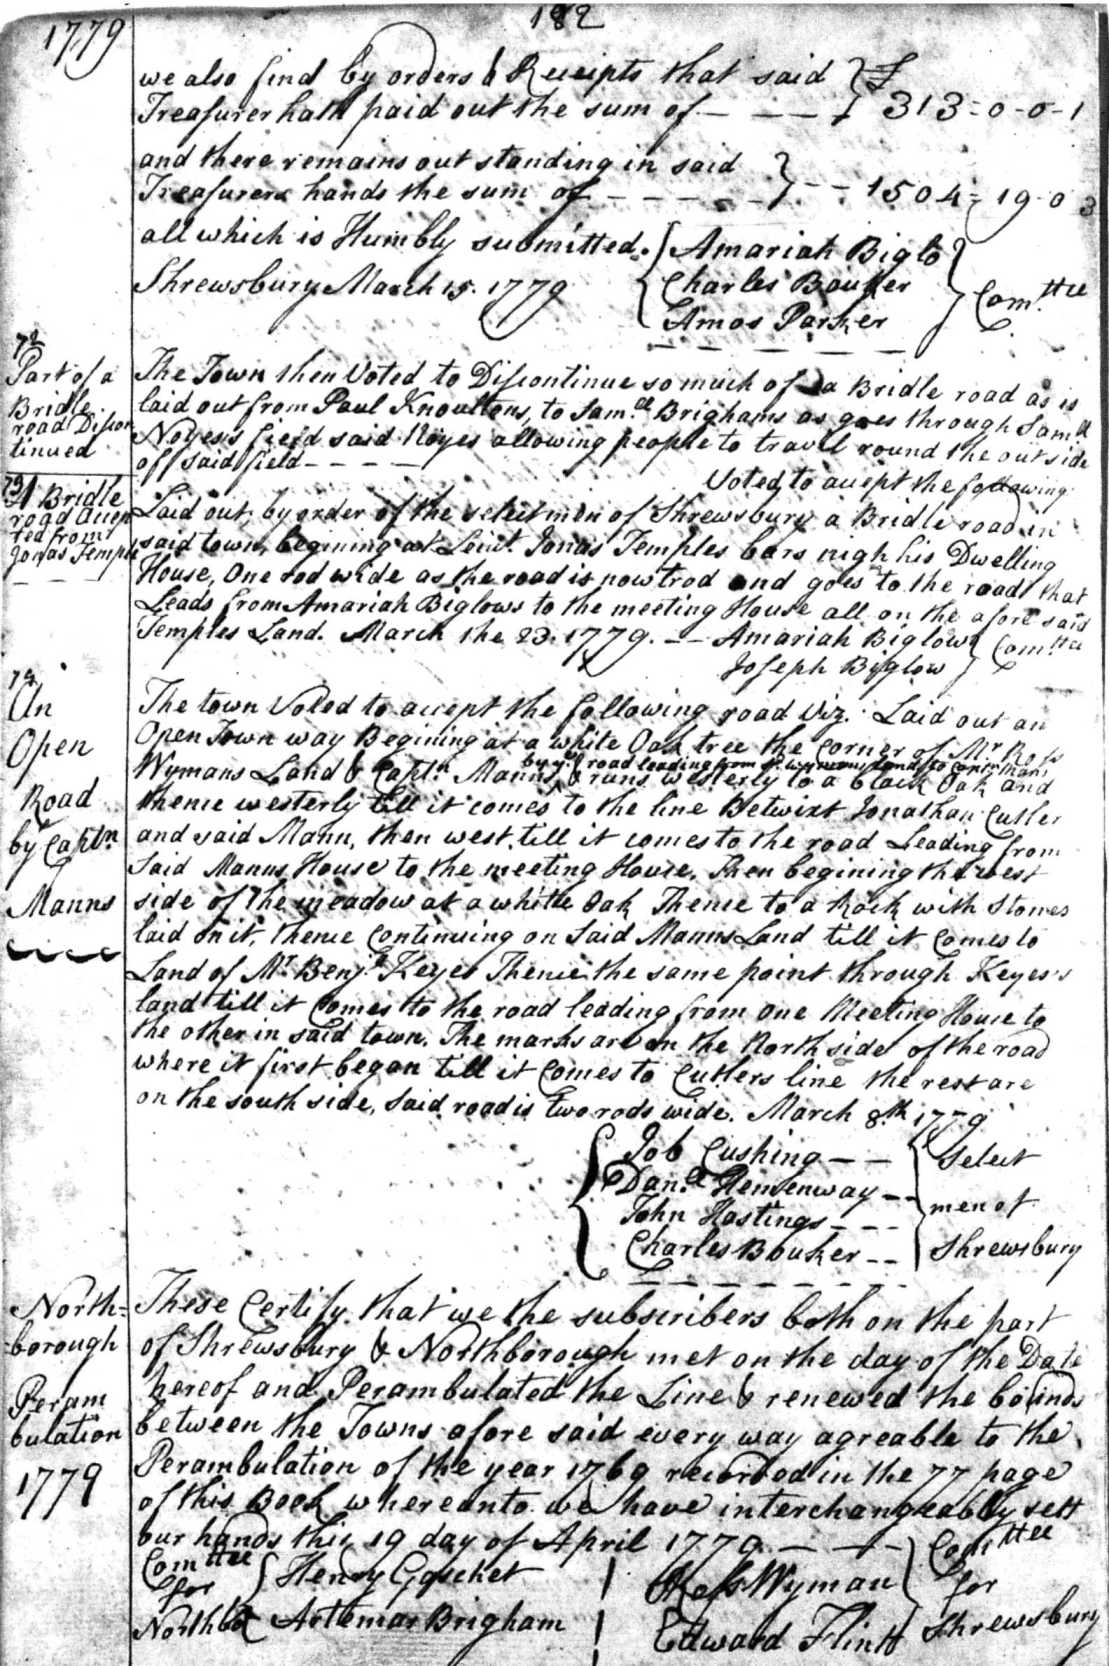 1779
182
we also find by orders & Receipts that said } £
Treasurer hath paid out the sum of — — — } 313=0-0-1
and there remains out standing in said
Treasurers hands the sum of - - - - - - } - - 1504=19-0 3
all which is Humbly submitted. { Amariah Biglo
Shrewsbury March 15. 1779 { Charles Bouker } Comttee
Amos Parker
72
Part of a
Bridle
road Discon
tinued
The Town then Voted to Discontinue so much of a Bridle road as is
laid out from Paul Knoultens, to Samll Brighams as goes through Samll
Noyes's field said Noyes allowing people to travel round the out side
of said field - - - - -
Voted to accept the following
73
A Bridle
road Accep
ted from
Jonas Temple
Laid out, by order of the selectmen of Shrewsbury a Bridle road in
said town, begining at Leiut. Jonas Temples bars nigh his Dwelling
House, One rod wide as the road is now trod and goes to the road that
Leads from Amariah Biglows to the meeting House all on the afore said
Temples Land. March the 23. 1779. — Amariah Biglow } Comttee
Joseph Biglow
74
An
Open
Road
by Captn
Manns
The town Voted to accept the following road Viz. Laid out an
Open Town way Begining at a white Oak tree the corner of Mr Ross
by ye road leading from sd wymans land to Captn Manns
Wymans Land & Captn Manns & runs westerly to a black Oak and
thence westerly till it comes to the line Betwixt Jonathan Cutler
and said Mann, then west, till it comes to the road Leading from
Said Manns House to the meeting House, Then begining the west
side of the meadow at a white Oak Thence to a Rock with Stones
laid on it, thence Continuing on Said Manns Land till it Comes to
Land of Mr Benja Keyes Thence the same point through Keyes's
land till it Comes to the road leading from one Meeting House to
the other in said town. The marks are on the North side of the road
where it first began till it Comes to Cutlers line the rest are
on the south side, Said road is two rods wide. March 8th 1779
Job Cushing — — Select
Danll Hemenway — —
men of
John Hastings - - -
Charles Bouker - - Shrewsbury
North=
borough
Peram
bulation
1779
These Certify that we the subscribers both on the part
of Shrewsbury & Northborough met on the day of the Date
hereof and Perambulated the Line & renewed the bounds
between the Towns afore said every way agreable to the
Perambulation of the year 1769 recorded in the 77 page
of this Book whereunto we have interchangeably sett
our hands this 19 day of April 1779. — — —
Comttee { Henry Gaschet | Ross Wyman } Comttee
for for
Northbo { Artemas Brigham | Edward Flint Shrewsbury